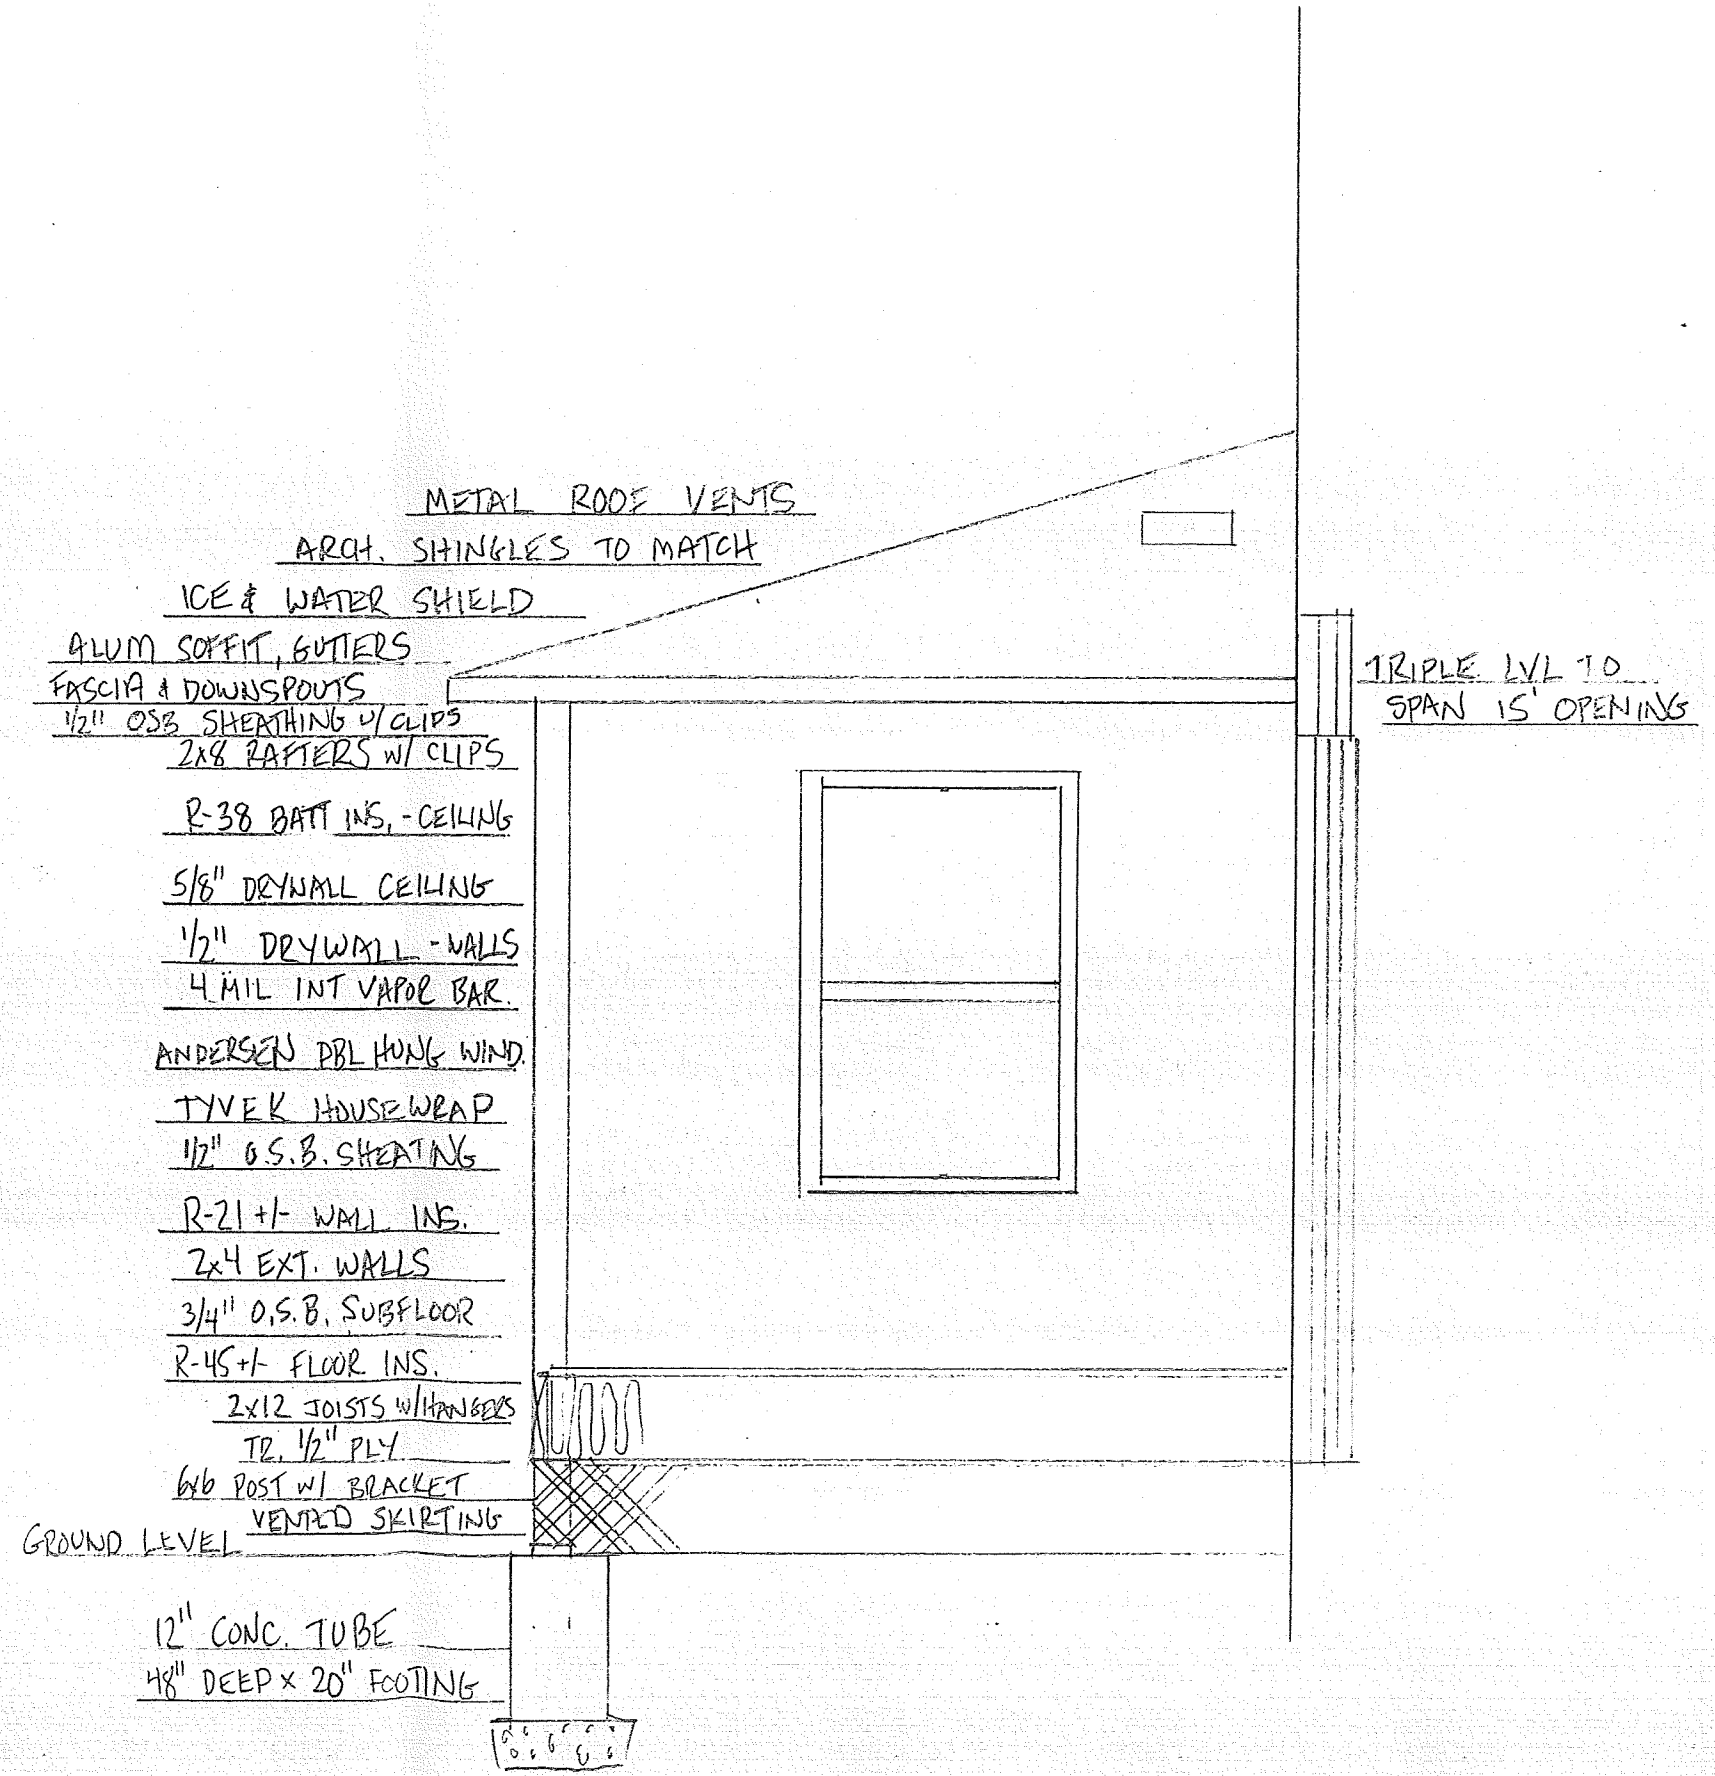 METAL ROOF VENTS
ARCH. SHINGLES TO MATCH
ICE & WATER SHIELD
ALUM SOFFIT, GUTTERS
FASCIA & DOWNSPOUTS
1/2" OSB SHEATHING W/ CLIPS
2x8 RAFTERS W/ CLIPS
R-38 BATT INS, - CEILING
5/8" DRYWALL CEILING
1/2" DRYWALL - WALLS
4 MIL INT VAPOR BAR.
ANDERSEN DBL HUNG WIND.
TYVEK HOUSEWRAP
1/2" O.S.B. SHEATING
R-21 +/- WALL INS.
2x4 EXT. WALLS
3/4" O.S.B. SUBFLOOR
R-45 +/- FLOOR INS.
2x12 JOISTS W/HANGERS
TR. 1/2" PLY
6x6 POST W/ BRACKET
VENTED SKIRTING
GROUND LEVEL
12" CONC. TUBE
48" DEEP x 20" FOOTING
TRIPLE LVL TO
SPAN 15' OPENING